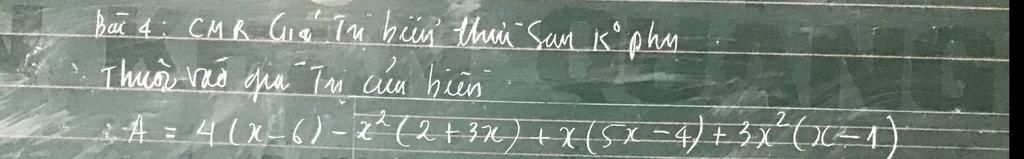 Bài 4: CMR Giá Trị biến thức Sau K° phụ
Thuộc vào giá Trị của biến
A = 4(x-6) - x²(2+3x) + x(5x-4) + 3x²(x-1)